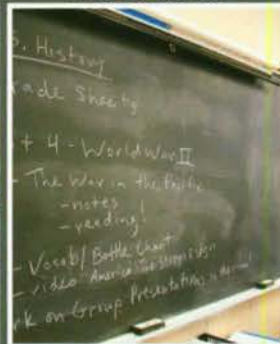 S. History
rade Sheets
+ 4 - World War II
- The War in the Pacific
- notes
- reading!
- Vocab/ Battle Chart
- video America
rk on Group Presentations